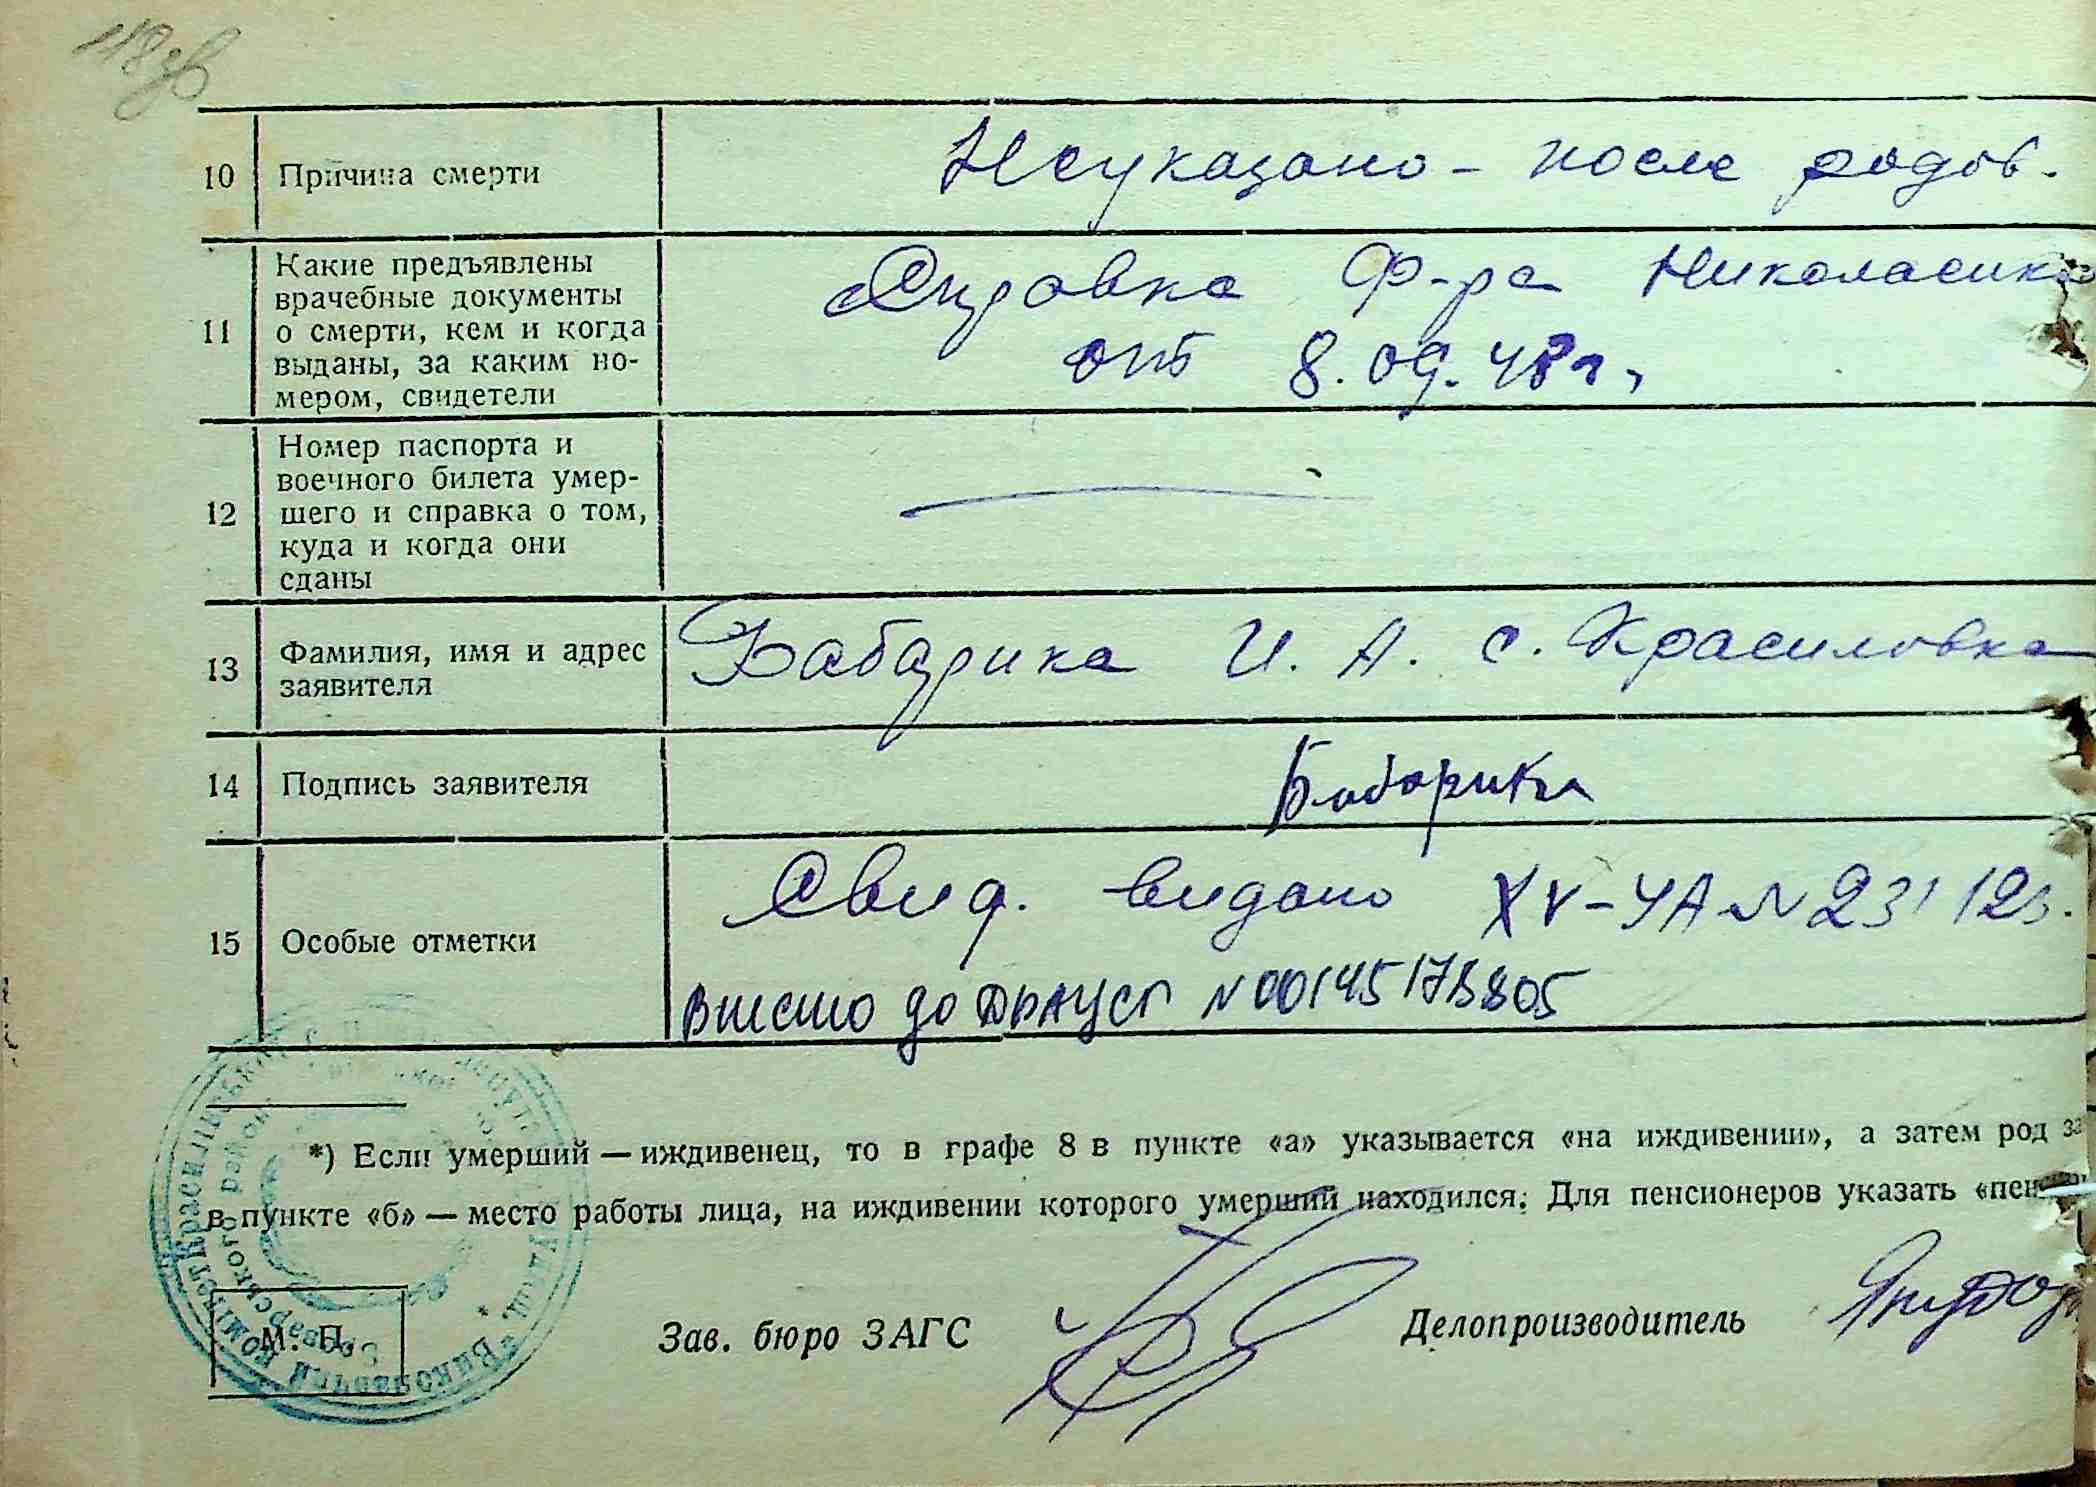 118зв
10 Причина смерти Неуказано - после родов.
11 Какие предъявлены
врачебные документы
о смерти, кем и когда
выданы, за каким но-
мером, свидетели
Справка Ф-ра Николаенко
от 8.09.48г.
12 Номер паспорта и
военного билета умер-
шего и справка о том,
куда и когда они
сданы
—
13 Фамилия, имя и адрес
заявителя
Бабарика И. А. с. Красиловка
14 Подпись заявителя Бабарика
15 Особые отметки
Свид. видано XV-УА № 231123.
Внесено до ДРАЦСГ N 00145173805
*) Если умерший — иждивенец, то в графе 8 в пункте «а» указывается «на иждивении», а затем род за
в пункте «б» — место работы лица, на иждивении которого умерший находился. Для пенсионеров указать «пенсион
М. П. Зав. бюро ЗАГС Делопроизводитель